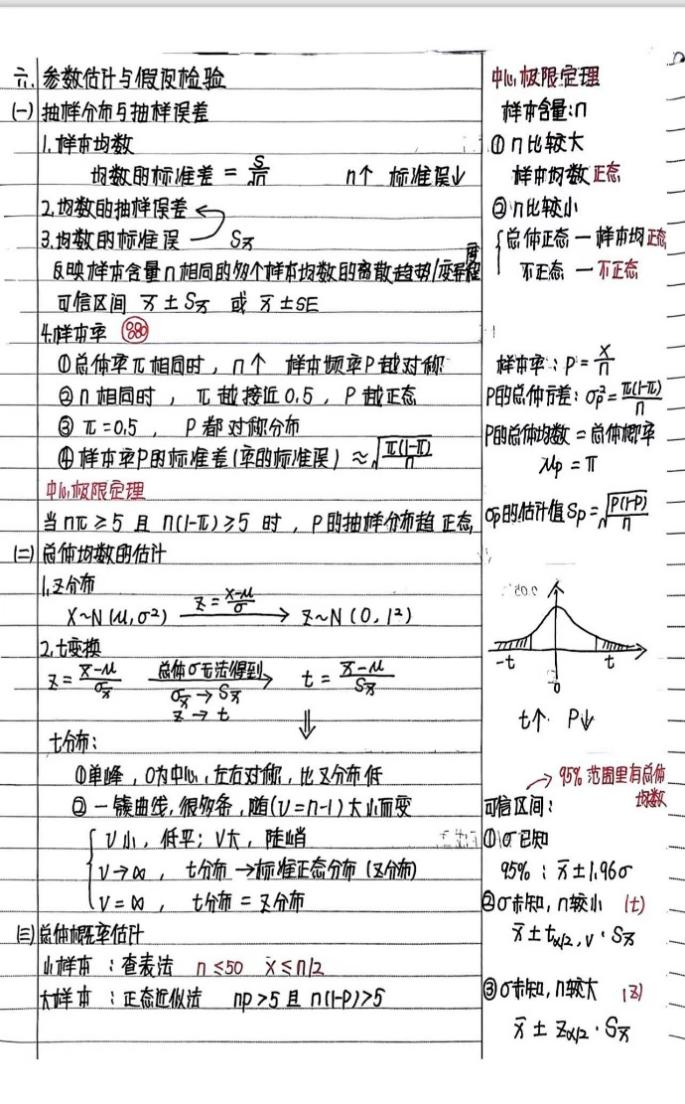 六、参数估计与假设检验
(一) 抽样分布与抽样误差
1.样本均数
均数的标准差 = S/√n n↑ 标准误↓
2.均数的抽样误差
3.均数的标准误 Sx̄
反映样本含量n相同的多个样本均数的离散趋势/变异程度
可信区间 x̄ ± Sx̄ 或 x̄ ± SE
4.样本率 880
①总体率π相同时，n个 样本频率P越对称
②n相同时，π越接近0.5，P越正态
③π=0.5，P都对称分布
④样本率P的标准差(率的标准误) ≈ √(π(1-π)/n)
中心极限定理
当nπ≥5 且 n(1-π)≥5 时，P的抽样分布趋正态
(二) 总体均数的估计
1.z分布
X~N(μ,σ²) z=(x-μ)/σ → z~N(0,1²)
2.t变换
z=(x̄-μ)/σx̄ 总体σ无法得到 → t=(x̄-μ)/Sx̄
σx̄→Sx̄
z→t ⇓
t分布：
①单峰，0为中心，左右对称，比z分布低
②一簇曲线，很多条，随(ν=n-1)大小而变
ν小，低平；ν大，陡峭
ν→∞，t分布→标准正态分布(z分布)
ν=∞，t分布=z分布
(三) 总体概率估计
小样本：查表法 n≤50 x≤n/2
大样本：正态近似法 np>5 且 n(1-p)>5
中心极限定理
样本含量:n
①n比较大
样本均数正态
②n比较小
总体正态—样本均正态
不正态—不正态
样本率：P=X/n
P的总体方差：σp²=π(1-π)/n
P的总体均数=总体概率
μp=π
σp的估计值Sp=√(P(1-P)/n)
-t 0 t
t↑ P↓
→ 95%范围里有总体均数
可信区间：
①σ已知
95%：x̄±1.96σ
②σ未知，n较小 (t)
x̄±tα/2,ν·Sx̄
③σ未知，n较大 (z)
x̄±zα/2·Sx̄